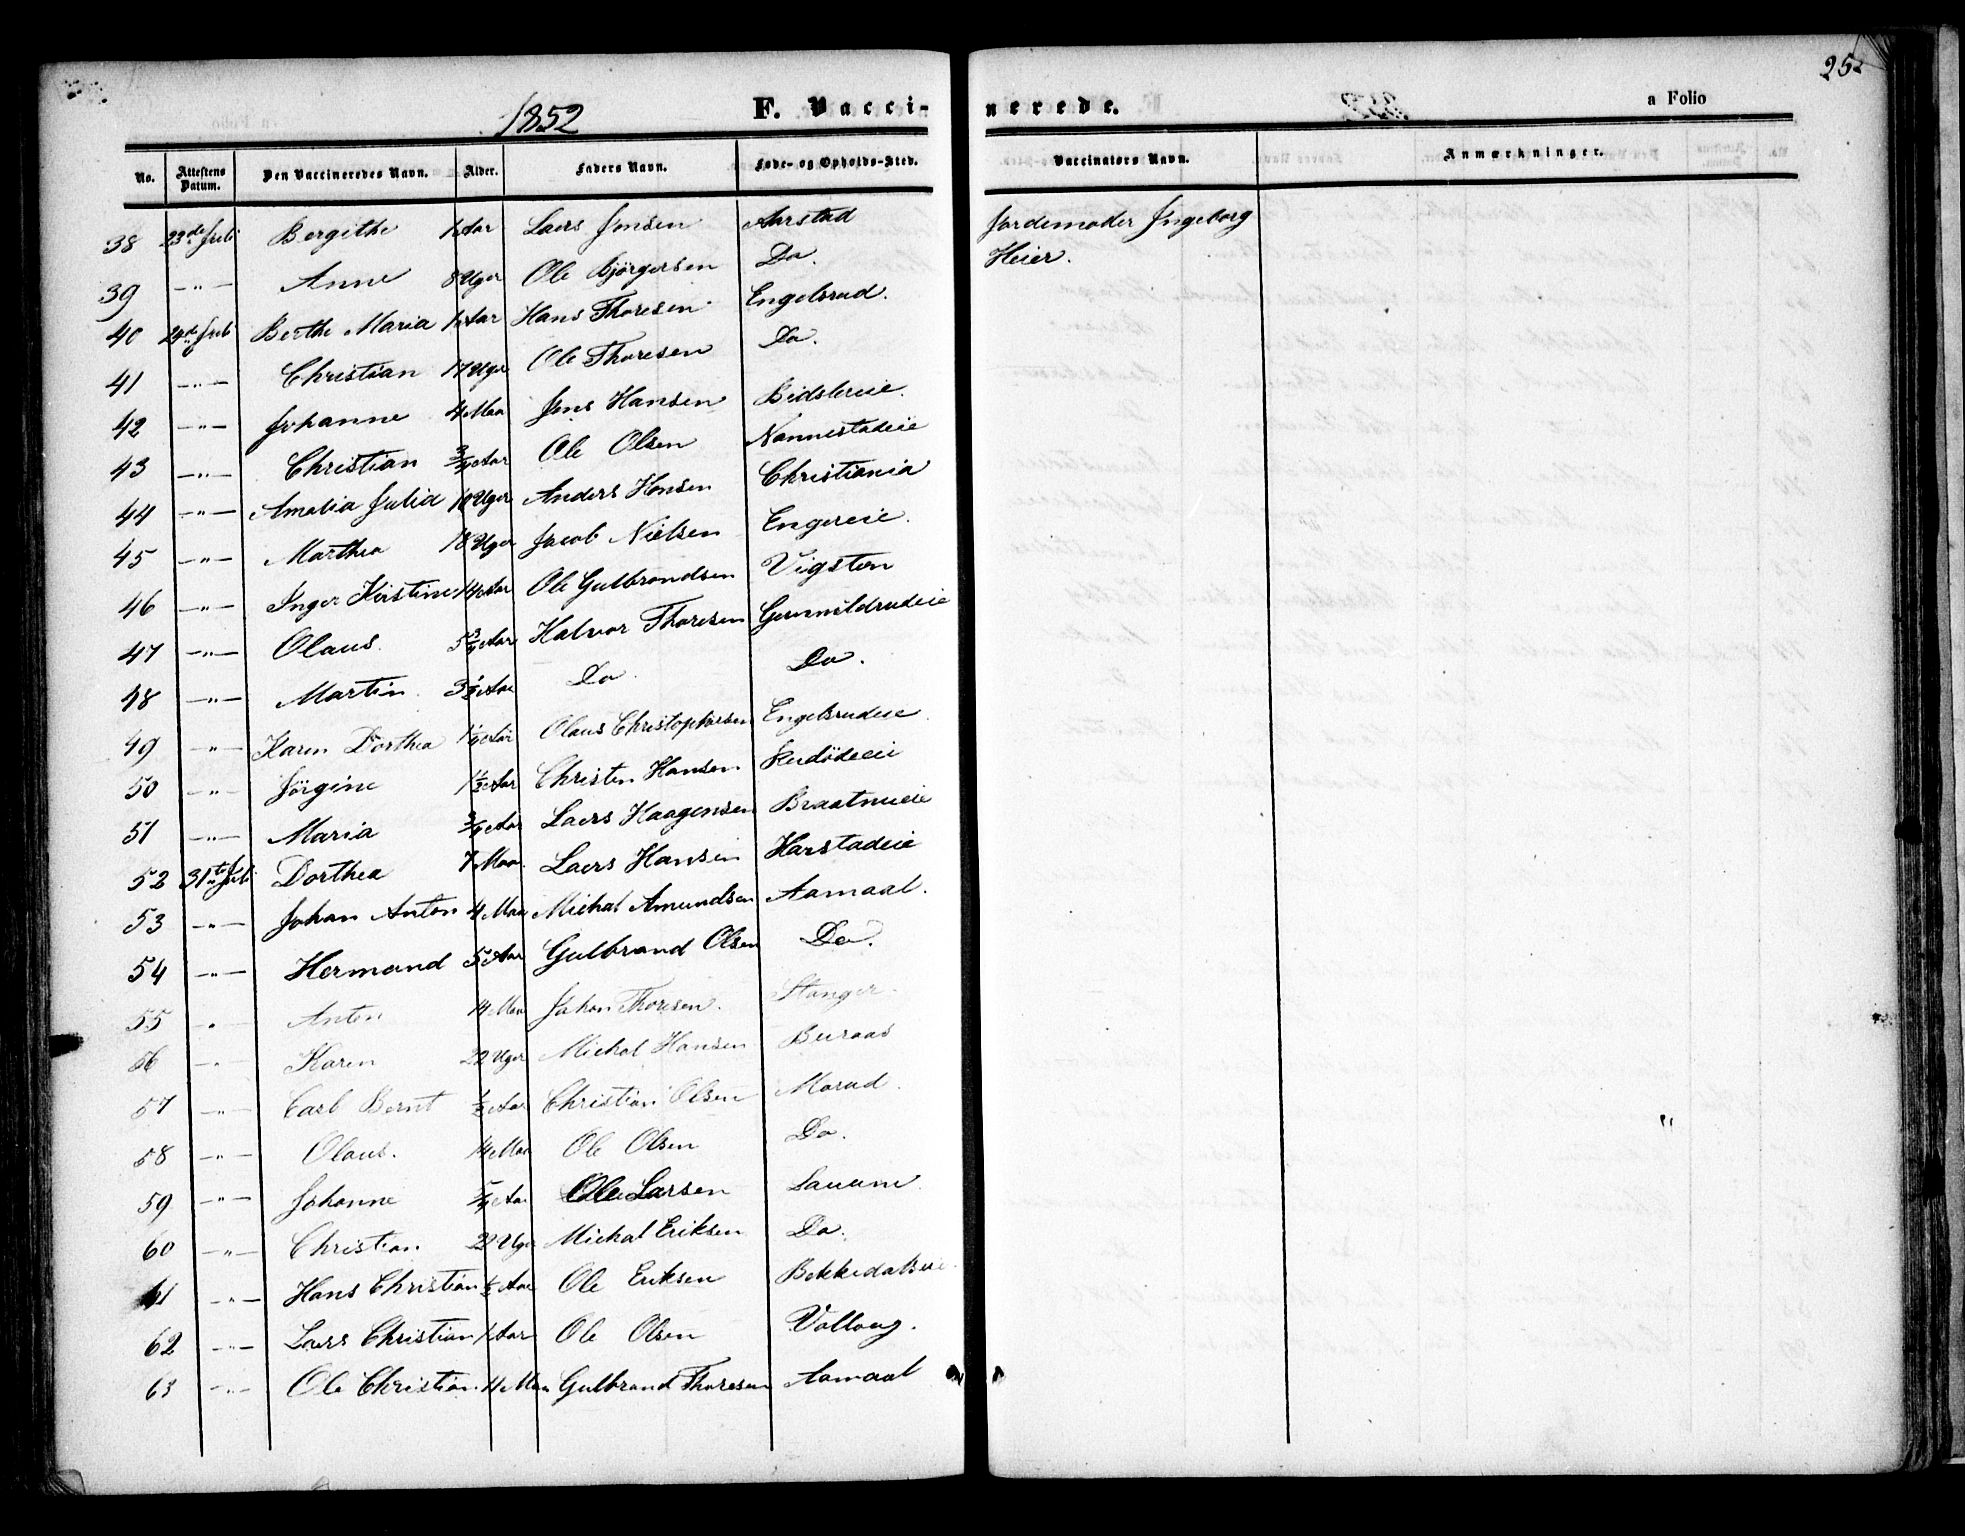 252
1852 F. Vacci- nerede. a Folio
No. Attestens Datum. Den Vaccineredes Navn. Alder. Faders Navn. Føde- og Opholds-Sted. Vaccinators Navn. Anmærkninger.
38 23de Juli Bergithe Aar Laers Jensen Aarstad Jordemoder Ingeborg
39 -"- Anne 8 Uger Ole Do. Heier.
40 29de Juli Berthe Maria Aar Hans Thoresen Engelsrud.
41 -"- Christian 17 Uger Ole Thoresen Do.
42 -"- Johanne 4 Maa Jens Hansen Bidslereie.
43 -"- Christian 3/4 Aar Ole Olsen Nannestadeie
44 -"- Amalia Julia 10 Uger Anders Hansen Christiania
45 -"- Marthea 18 Uger Jacob Nielsen Engereie.
46 -"- Inger Kirstine 14 Aar Ole Gulbrandsen Vigsten
47 -"- Olaus. 5 3/4 Aar Halvor Thoresen Gunnildrudeie
48 -"- Martin. 3 1/2 Aar Do Do.
49 -"- Karen Dorthea 1 1/4 Aar Olaus Christophersen Engelsrudeie.
50 -"- Jörgine 1 1/2 Aar Christen Hansen
51 -"- Maria 3/4 Aar Laers Haagensen Braatnueie
52 31te Juli Dorthea 7 Maa. Laers Hansen Harstadeie
53 -"- Johan Anton 4 Maa Michal Amundsen Aamaal.
54 -"- Hermand 5 Aar Gulbrand Olsen Do.
55 " Anten 14 Maa Johan Thoresen. Stanger.
56 -"- Karen 22 Uger Michal Hansen Buraas
57 -"- Carl Bernt 1/2 Aar Christian Olsen Morud.
58 -"- Olaus. 14 Maa Ole Olsen Do.
59 -"- Johanne 5/4 Aar Ole Larsen Lauum
60 -"- Christian 22 Uger Michal Eriksen Do.
61 -"- Hans Christian 1/2 Aar Ole Eriksen
62 -"- Laers Christian 1 Aar Ole Olsen Vollaug.
63 -"- Ole Christian. 4 Maa Gulbrand Thoresen Aamaal